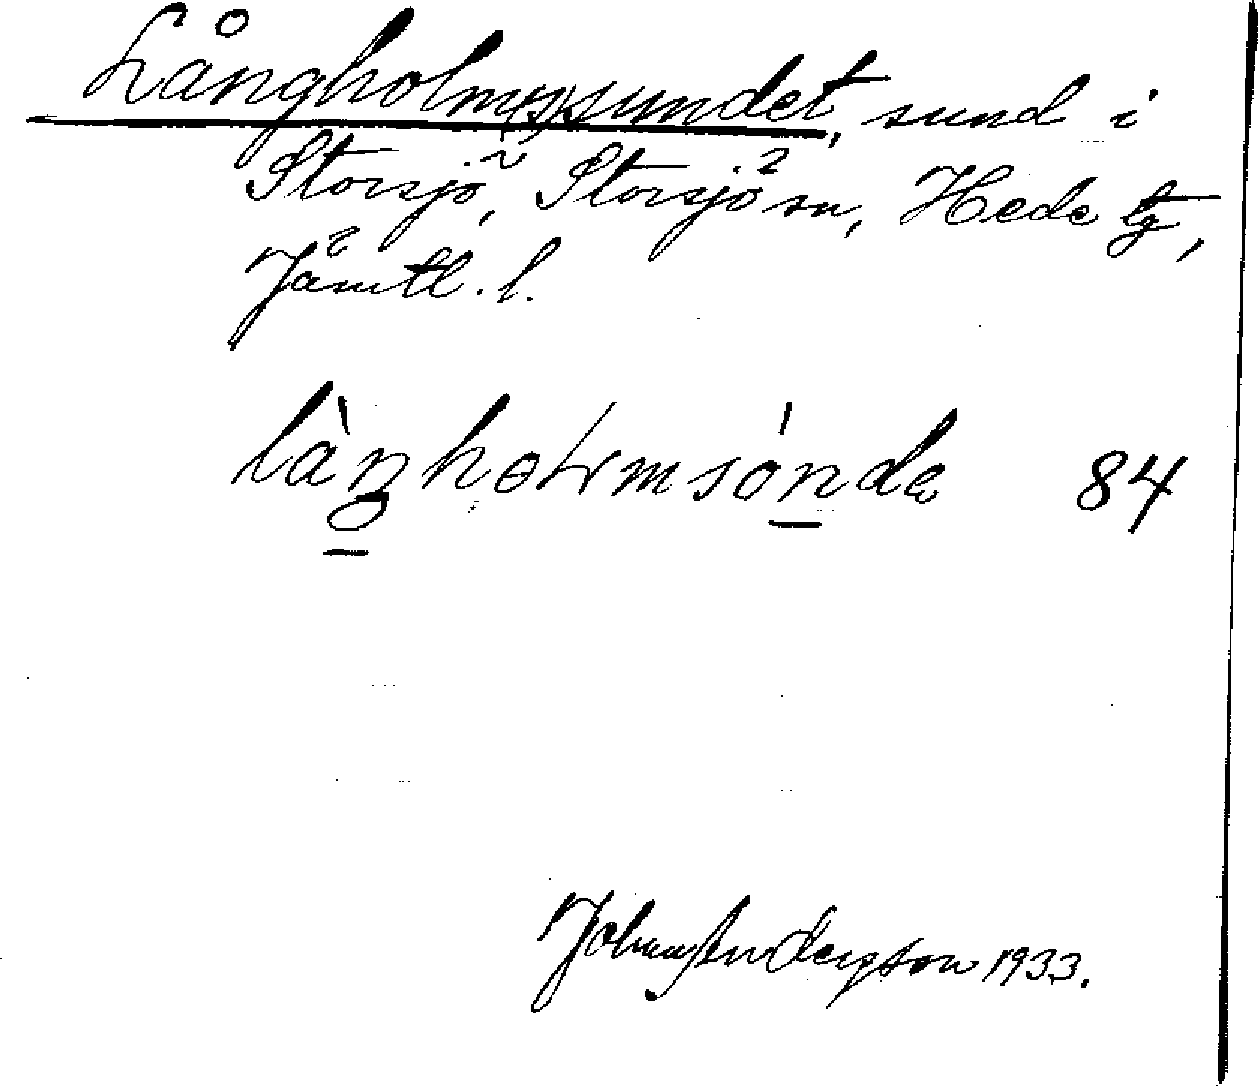 Långholm(s)sundet, sund i
Storsjö, Storsjö sn, Hede tg,
Jämtl. l.
làŋhoɫmsónde 84
Johnny Andersson 1933.